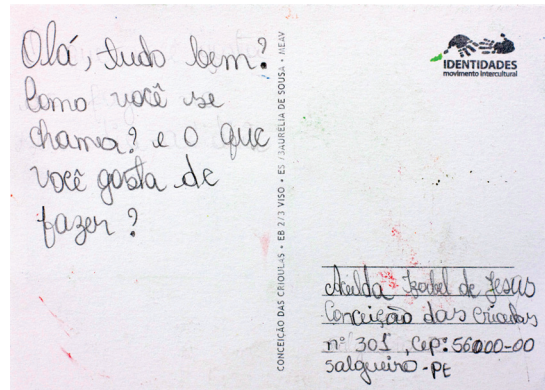 Olá, tudo bem?
Como você se
chama? e o que
você gosta de
fazer?
CONCEIÇÃO DAS CRIOULAS • EB 2/3 VISO • ES /3 AURÉLIA DE SOUSA • MEAV
IDENTIDADES
movimento intercultural
Izabel de Jesus
Conceição das Crioulas
nº 301, Cep: 56000-00
salgueiro - PE